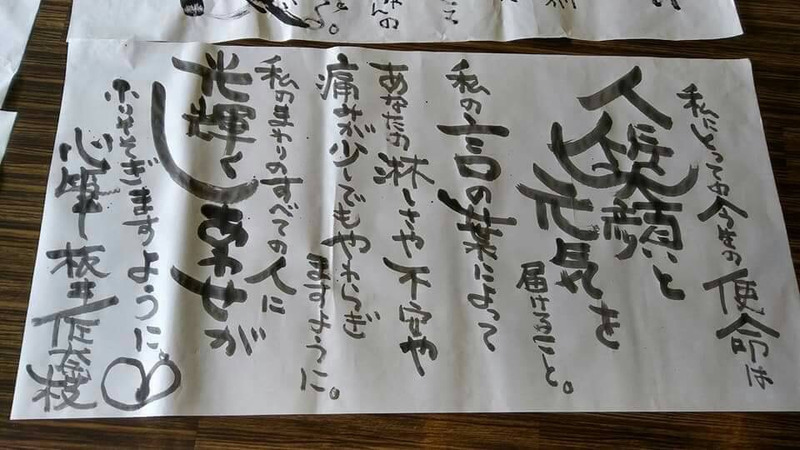 私にとっての今生の使命は
人に笑顔と
元気を
届けること。
私の言の葉によって
あなたの淋しさや不安や
痛みが少しでもやわらぎ
ますように。
私のまわりのすべての人に
光輝くしあわせが
ふりそそぎますように。
心筆 板井佐奈枝